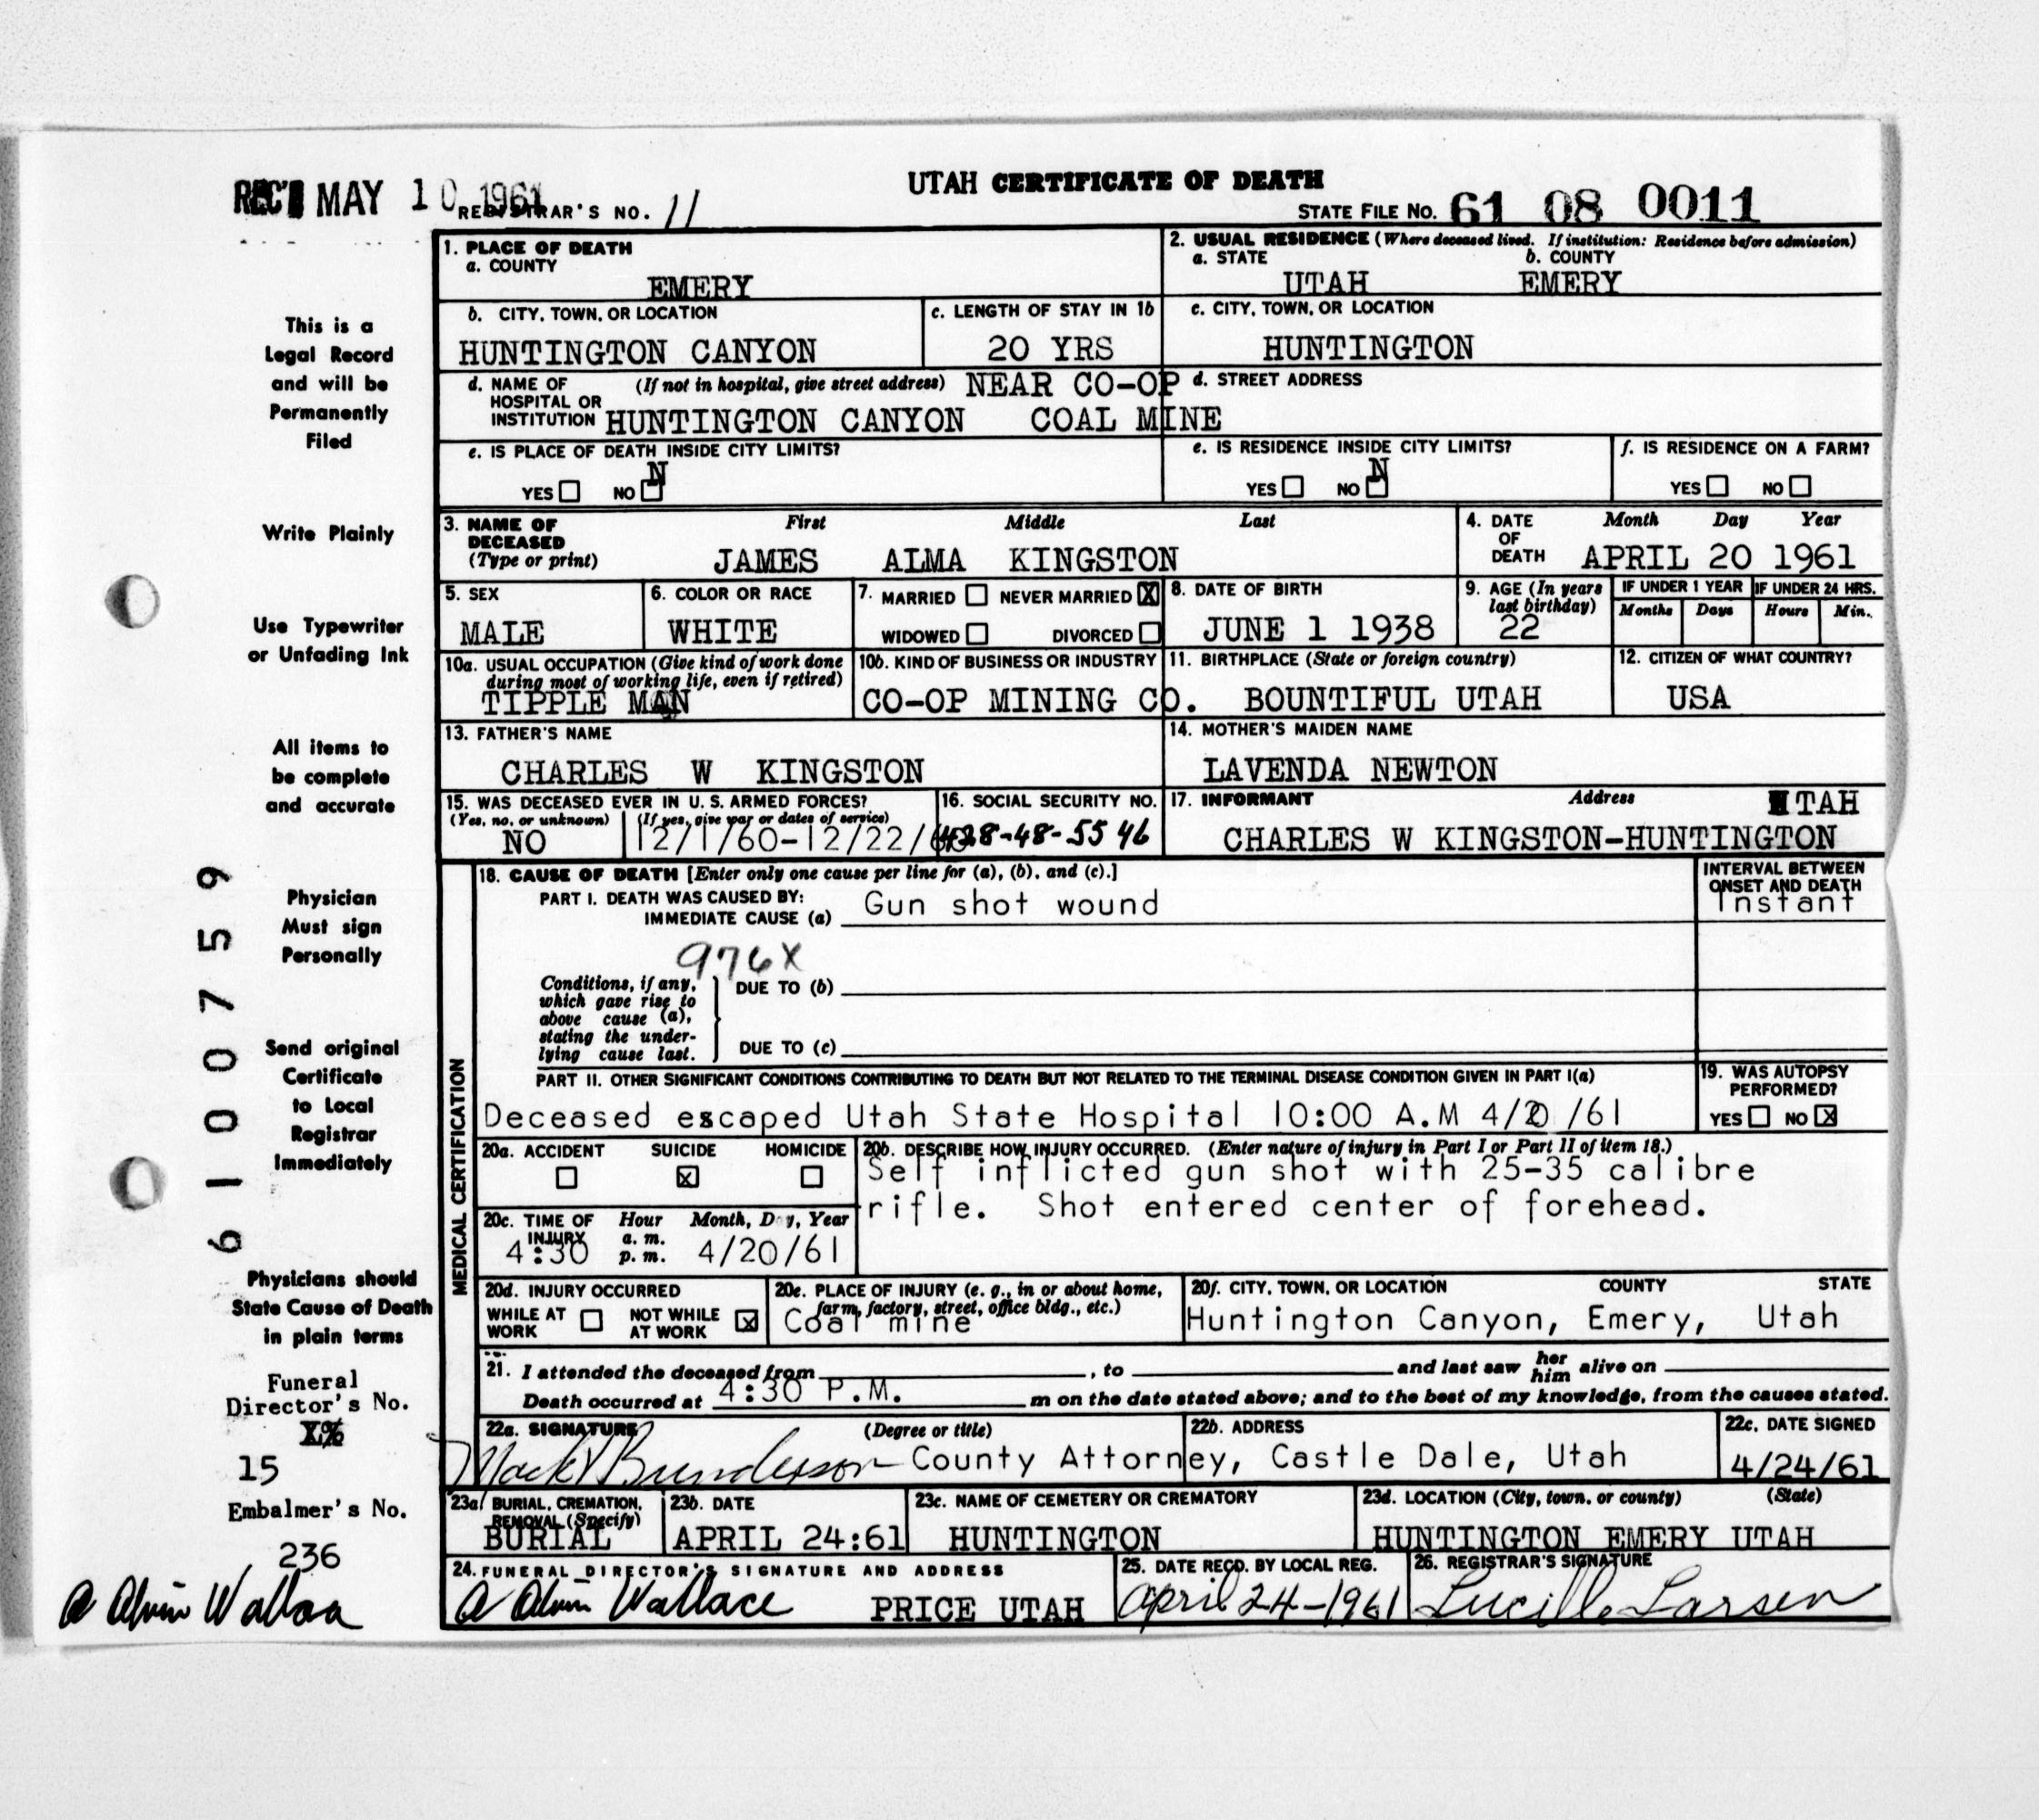 REC'D MAY 10 1961
REGISTRAR'S NO. 11
UTAH CERTIFICATE OF DEATH
STATE FILE No. 61 08 0011
This is a
Legal Record
and will be
Permanently
Filed
Write Plainly
Use Typewriter
or Unfading Ink
All items to
be complete
and accurate
Physician
Must sign
Personally
Send original
Certificate
to Local
Registrar
Immediately
Physicians should
State Cause of Death
in plain terms
Funeral
Director's No.
15
Embalmer's No.
236
A Alvin Wallace
6100759
1. PLACE OF DEATH
a. COUNTY
EMERY
2. USUAL RESIDENCE (Where deceased lived. If institution: Residence before admission)
a. STATE b. COUNTY
UTAH EMERY
b. CITY, TOWN, OR LOCATION
HUNTINGTON CANYON
c. LENGTH OF STAY IN 1b
20 YRS
c. CITY, TOWN, OR LOCATION
HUNTINGTON
d. NAME OF HOSPITAL OR INSTITUTION (If not in hospital, give street address) NEAR CO-OP
HUNTINGTON CANYON COAL MINE
d. STREET ADDRESS
e. IS PLACE OF DEATH INSIDE CITY LIMITS?
YES NO N
e. IS RESIDENCE INSIDE CITY LIMITS?
YES NO N
f. IS RESIDENCE ON A FARM?
YES NO
3. NAME OF DECEASED (Type or print)
First Middle Last
JAMES ALMA KINGSTON
4. DATE OF DEATH Month Day Year
APRIL 20 1961
5. SEX
MALE
6. COLOR OR RACE
WHITE
7. MARRIED NEVER MARRIED X
WIDOWED DIVORCED
8. DATE OF BIRTH
JUNE 1 1938
9. AGE (In years last birthday)
22
IF UNDER 1 YEAR
Months Days
IF UNDER 24 HRS.
Hours Min.
10a. USUAL OCCUPATION (Give kind of work done during most of working life, even if retired)
TIPPLE MAN
10b. KIND OF BUSINESS OR INDUSTRY
CO-OP MINING CO.
11. BIRTHPLACE (State or foreign country)
BOUNTIFUL UTAH
12. CITIZEN OF WHAT COUNTRY?
USA
13. FATHER'S NAME
CHARLES W KINGSTON
14. MOTHER'S MAIDEN NAME
LAVENDA NEWTON
15. WAS DECEASED EVER IN U. S. ARMED FORCES?
(Yes, no, or unknown) (If yes, give war or dates of service)
NO 12/1/60-12/22/
16. SOCIAL SECURITY NO.
28-48-5546
17. INFORMANT Address UTAH
CHARLES W KINGSTON-HUNTINGTON
MEDICAL CERTIFICATION
18. CAUSE OF DEATH [Enter only one cause per line for (a), (b), and (c).]
PART I. DEATH WAS CAUSED BY:
IMMEDIATE CAUSE (a) Gun shot wound
INTERVAL BETWEEN ONSET AND DEATH
Instant
976X
Conditions, if any, which gave rise to above cause (a), stating the underlying cause last.
DUE TO (b)
DUE TO (c)
PART II. OTHER SIGNIFICANT CONDITIONS CONTRIBUTING TO DEATH BUT NOT RELATED TO THE TERMINAL DISEASE CONDITION GIVEN IN PART I(a)
Deceased escaped Utah State Hospital 10:00 A.M 4/20/61
19. WAS AUTOPSY PERFORMED?
YES NO X
20a. ACCIDENT SUICIDE HOMICIDE
X
20b. DESCRIBE HOW INJURY OCCURRED. (Enter nature of injury in Part I or Part II of item 18.)
Self inflicted gun shot with 25-35 calibre
rifle. Shot entered center of forehead.
20c. TIME OF INJURY Hour a. m. p. m. Month, Day, Year
4:30 4/20/61
20d. INJURY OCCURRED
WHILE AT WORK NOT WHILE AT WORK X
20e. PLACE OF INJURY (e. g., in or about home, farm, factory, street, office bldg., etc.)
Coal mine
20f. CITY, TOWN, OR LOCATION COUNTY STATE
Huntington Canyon, Emery, Utah
21. I attended the deceased from , to and last saw her him alive on
Death occurred at 4:30 P.M. m on the date stated above; and to the best of my knowledge, from the causes stated.
22a. SIGNATURE (Degree or title)
County Attorney,
22b. ADDRESS
Castle Dale, Utah
22c. DATE SIGNED
4/24/61
23a. BURIAL, CREMATION, REMOVAL (Specify)
BURIAL
23b. DATE
APRIL 24:61
23c. NAME OF CEMETERY OR CREMATORY
HUNTINGTON
23d. LOCATION (City, town, or county) (State)
HUNTINGTON EMERY UTAH
24. FUNERAL DIRECTOR'S SIGNATURE AND ADDRESS
A Alvin Wallace PRICE UTAH
25. DATE RECD. BY LOCAL REG.
April 24-1961
26. REGISTRAR'S SIGNATURE
Lucille Larsen